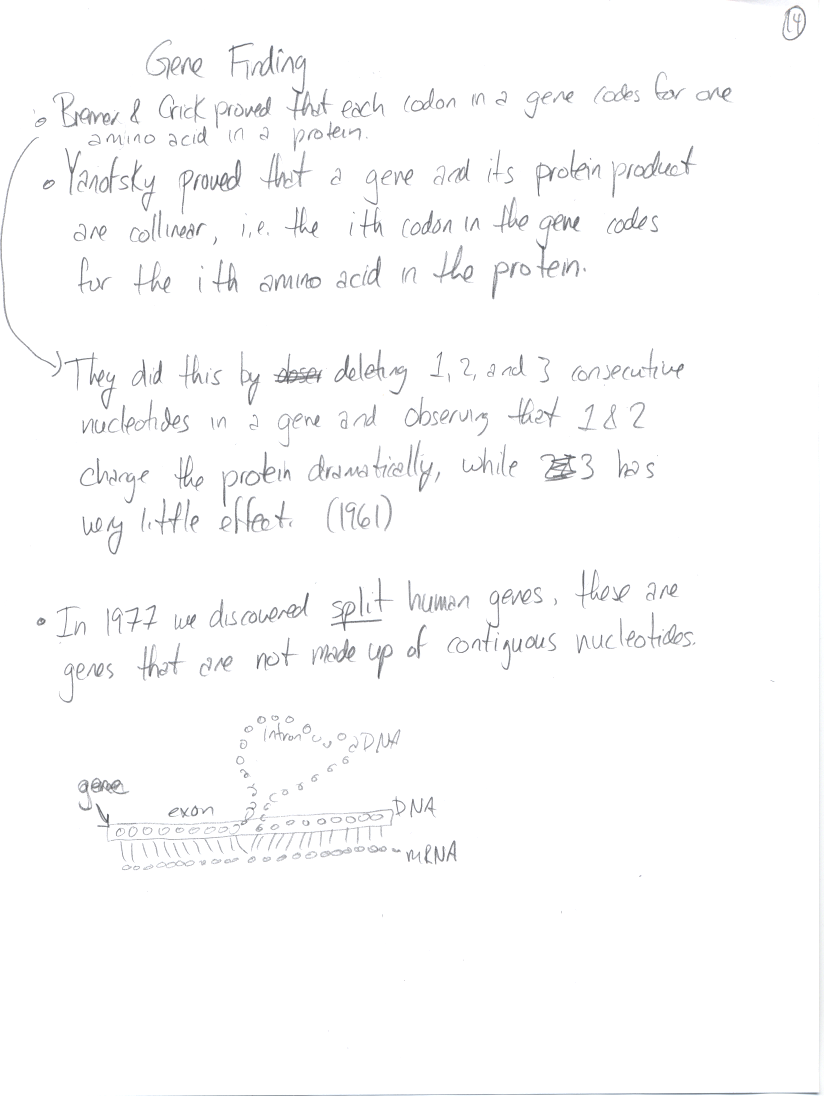 14
Gene Finding
Brener & Crick proved that each codon in a gene codes for one
amino acid in a protein.
Yanofsky proved that a gene and its protein product
are collinear, i.e. the ith codon in the gene codes
for the ith amino acid in the protein.
They did this by obser deleting 1, 2, and 3 consecutive
nucleotides in a gene and observing that 1 & 2
change the protein dramatically, while 3 has
very little effect. (1961)
In 1977 we discovered split human genes, these are
genes that are not made up of contiguous nucleotides.
intron
DNA
gene
exon
DNA
mRNA